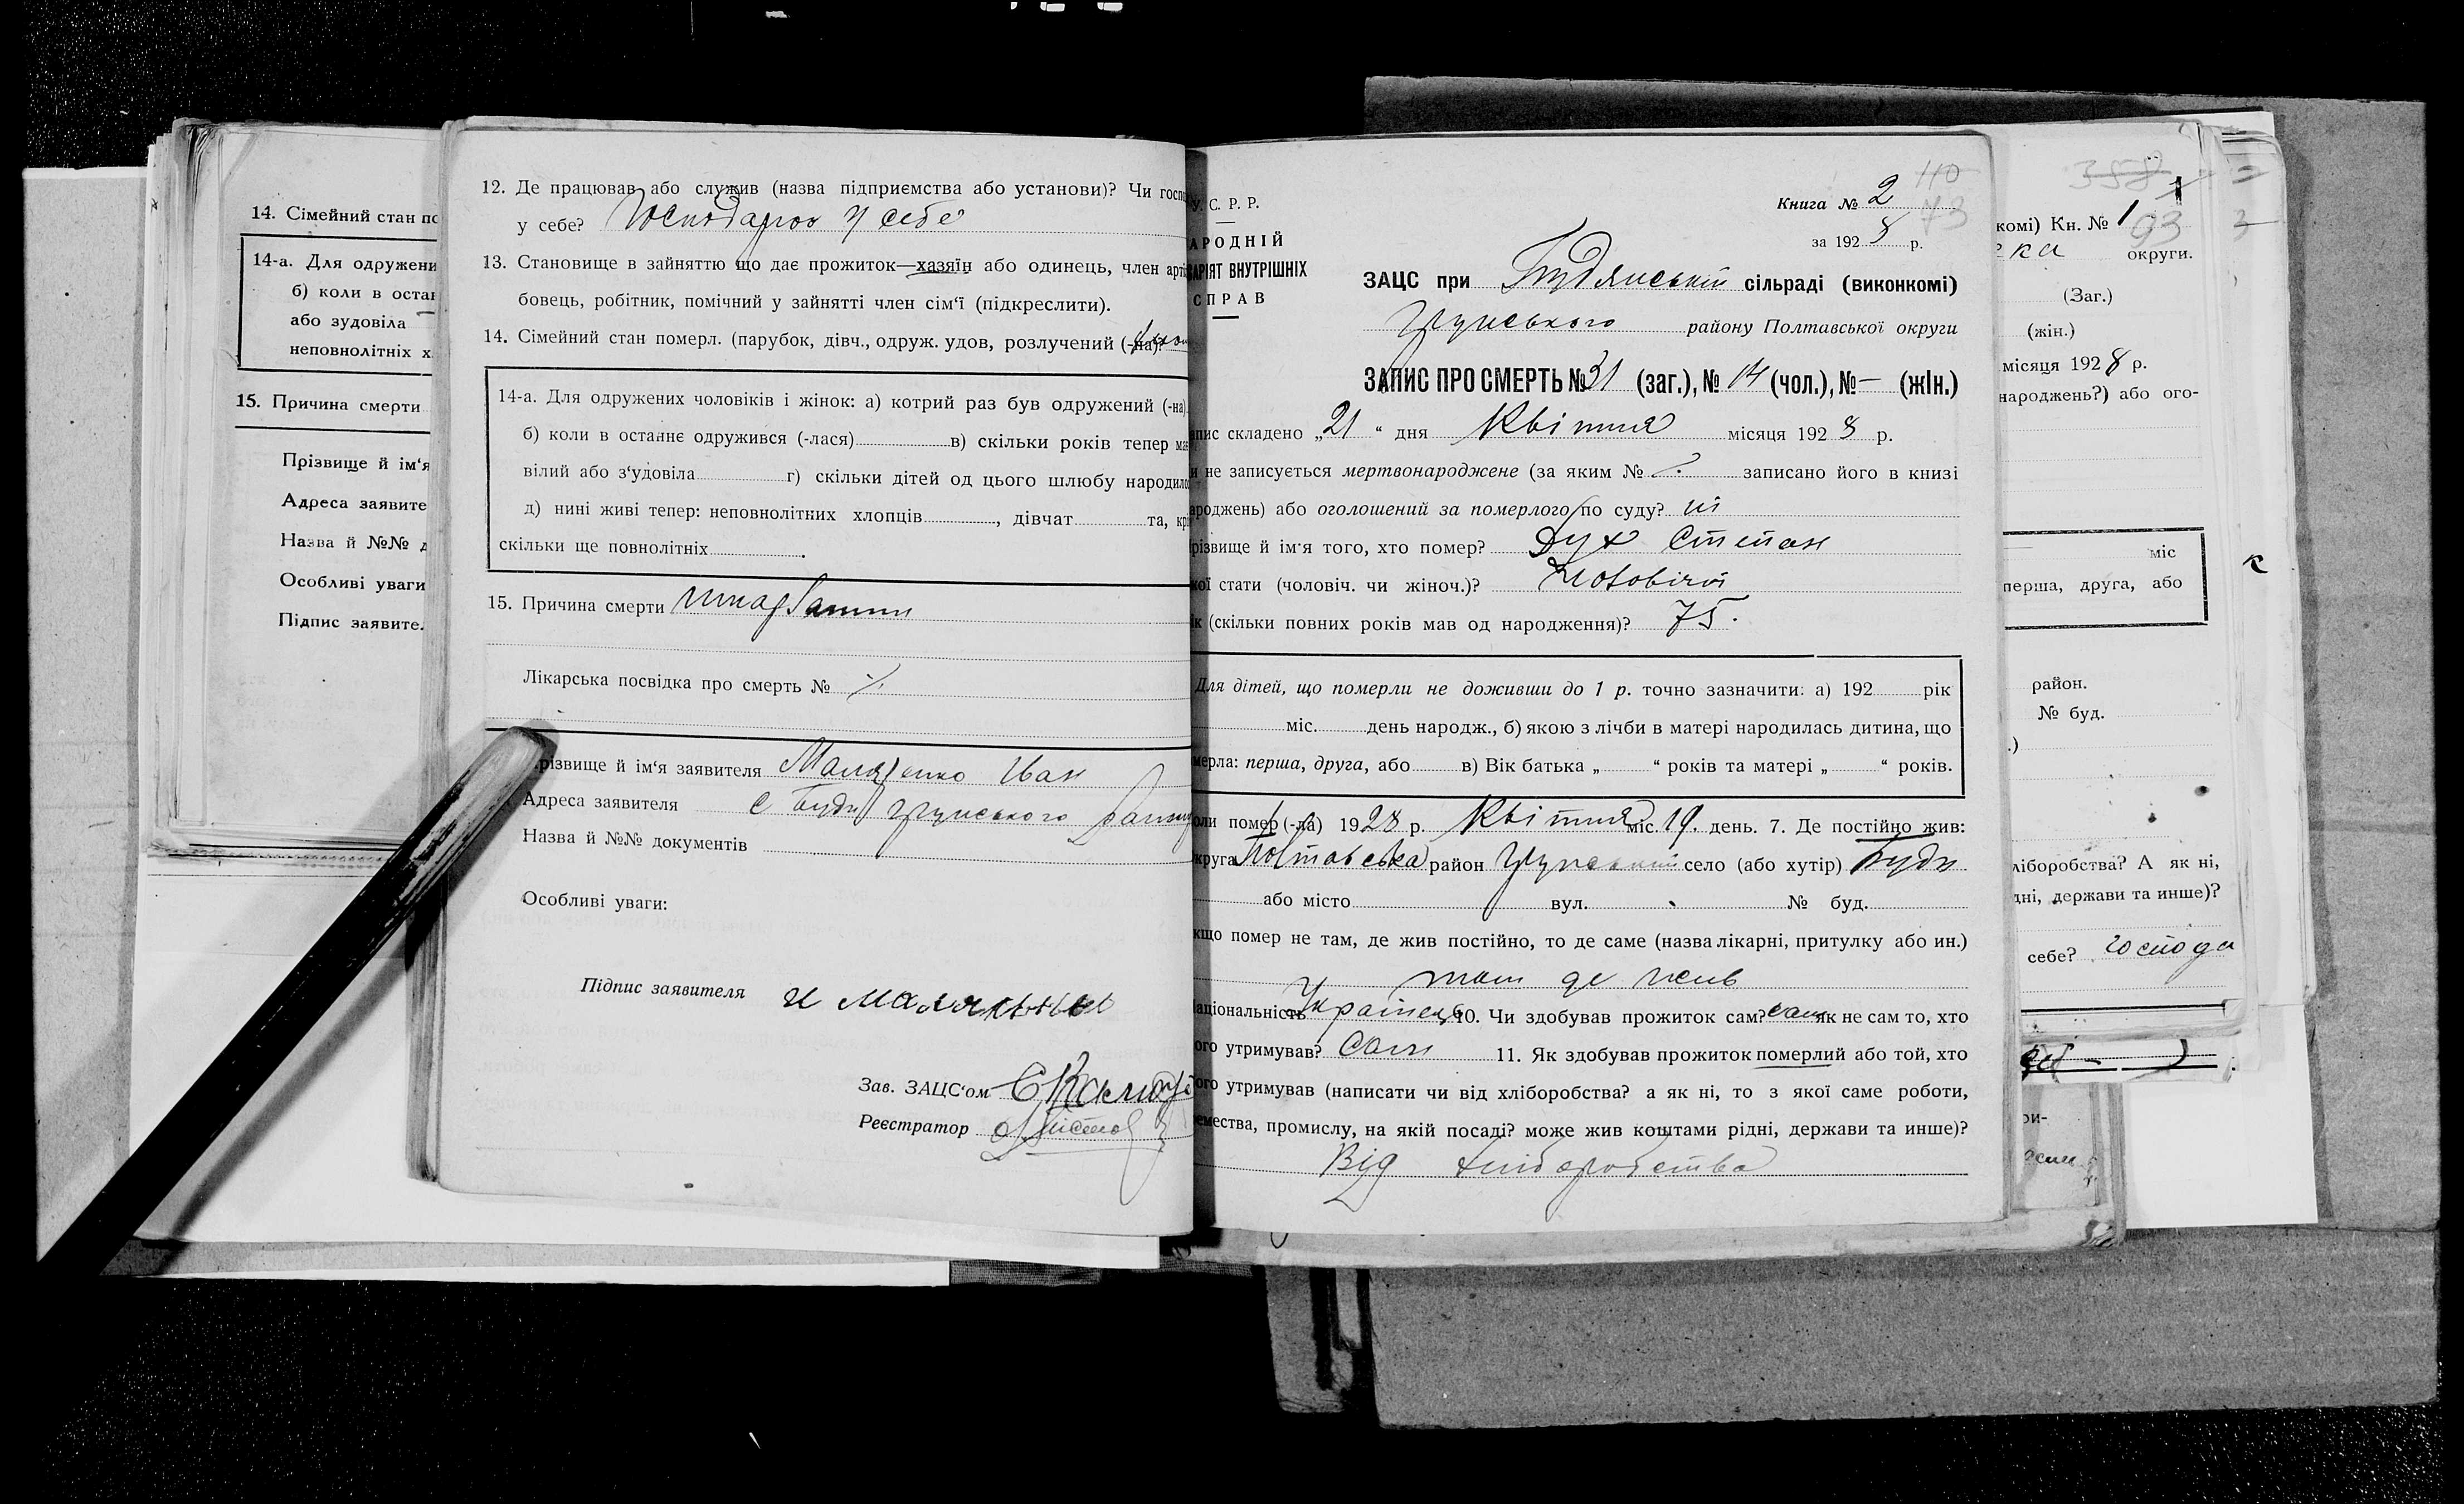 14. Сімейний стан по
14-а. Для одружени
б) коли в остан
або зудовіла
неповнолітніх х
15. Причина смерти
Прізвище й ім'я
Адреса заявите
Назва й №№ д
Особливі уваги
Підпис заявите
12. Де працював або служив (назва підприємства або установи)? Чи госп
у себе? Господарюв у себе
13. Становище в зайняттю що дає прожиток—хазяїн або одинець, член арті
бовець, робітник, помічний у зайнятті член сім'ї (підкреслити).
14. Сімейний стан померл. (парубок, дівч., одруж. удов, розлучений (-на)?
14-а. Для одружених чоловіків і жінок: а) котрий раз був одружений (-на)
б) коли в останнє одружився (-лася) в) скільки років тепер має
вілий або з'удовіла г) скільки дітей од цього шлюбу народило
д) нині живі тепер: неповнолітних хлопців , дівчат та, крі
скільки ще повнолітніх .
15. Причина смерти
Лікарська посвідка про смерть № ·/.
різвище й ім'я заявителя Маляренко Іван
Адреса заявителя с Буди Грунського
Назва й №№ документів
Особливі уваги:
Підпис заявителя И
Зав. ЗАЦС'ом
Реєстратор
У. С. Р. Р.
АРОДНІЙ
АРІЯТ ВНУТРІШНІХ
СПРАВ
110
Книга № 2 73
за 192 8 р.
ЗАЦС при Будянській сільраді (виконкомі)
Грунського району Полтавської округи
ЗАПИС ПРО СМЕРТЬ № 31 (заг.), № 14 (чол.), № — (жін.)
апис складено „21“ дня Квітня місяця 192 8 р.
и не записується мертвонароджене (за яким № ·/. записано його в книзі
ароджень) або оголошений за померлого по суду? ні
різвище й ім'я того, хто помер? Дух Степан
кої стати (чоловіч. чи жіноч.)? Чоловічої
ік (скільки повних років мав од народження)? 75.
Для дітей, що померли не доживши до 1 р. точно зазначити: а) 192 рік
міс. день народж., б) якою з лічби в матері народилась дитина, що
мерла: перша, друга, або в) Вік батька „ “ років та матері „ “ років.
оли помер (-ла) 1928 р. Квітня міс. 19. день. 7. Де постійно жив:
круга Полтавська район Грунський село (або хутір) Буди
або місто вул. № буд.
кщо помер не там, де жив постійно, то де саме (назва лікарні, притулку або ин.)
там де жив
аціональність Українець 10. Чи здобував прожиток сам? сам як не сам то, хто
ого утримував? Сам 11. Як здобував прожиток померлий або той, хто
ого утримував (написати чи від хліборобства? а як ні, то з якої саме роботи,
емества, промислу, на якій посаді? може жив коштами рідні, держави та инше)?
Від хліборобства
358
1
комі) Кн. № 1 93
ка округи.
(Заг.)
(жін.)
місяця 192 8 р.
народжень?) або ого-
міс
перша, друга, або
район.
№ буд.
.)
ліборобства? А як ні,
дні, держави та инше)?
себе? господа
ри-